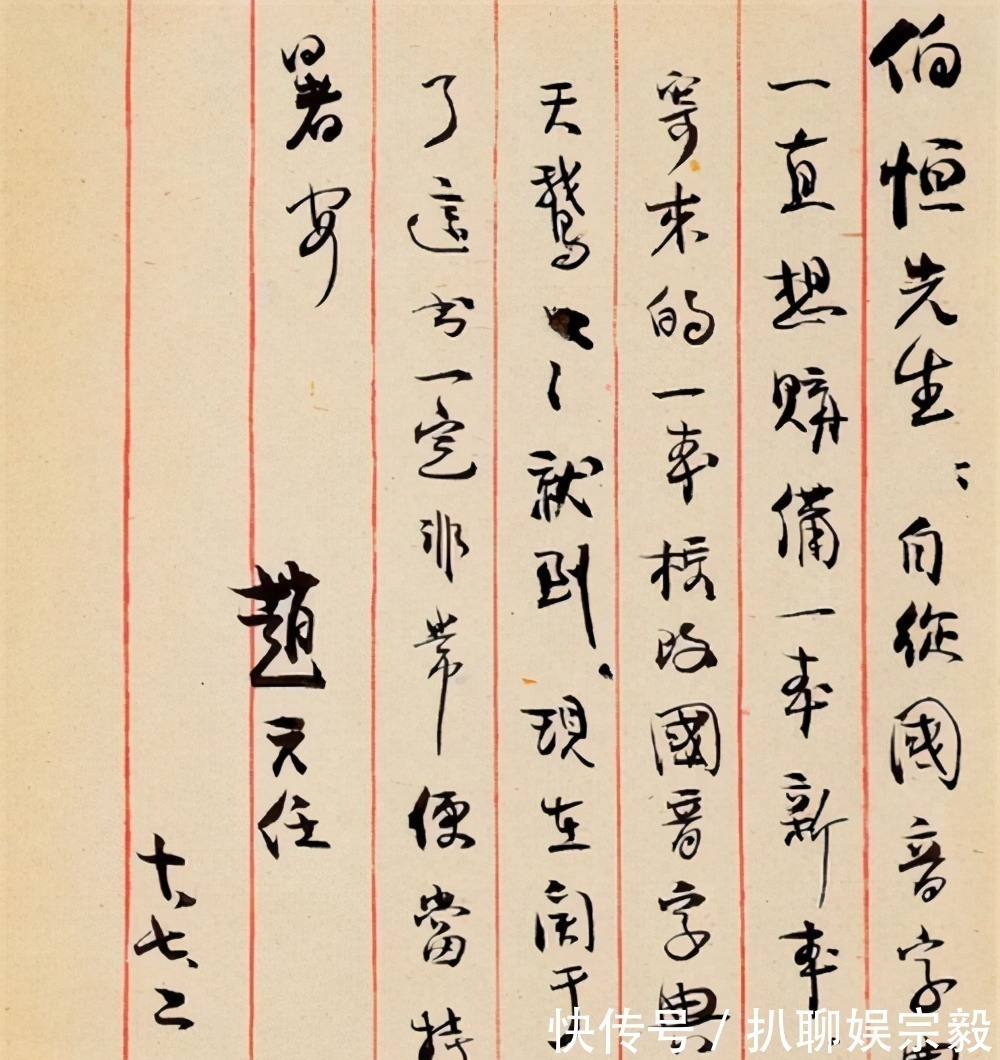 伯恒先生：自從國音字
一直想購備一本新本
寄來的一本校改國音字典
天就到、現在關于
了這书一定非常便當
暑安
趙元任
十、七、二
快传号 / 扒聊娱宗毅